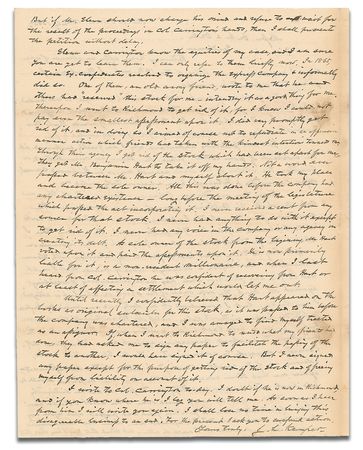 But if Mr. Glenn should now change his mind and refuse to wait for
the result of the proceedings in Col Carrington's hands, then I shall present
the petition without delay.
Glenn and Carrington know the equities of my case, and I am sure
you are yet to learn them. I can only refer to them briefly now. In 1865,
certain Ex-Confederates resolved to organize the Express Company & informally
did so. One of them, an old army friend, wrote to me that he and
others had reserved this stock for me, intending it as a good thing for me.
Thereupon I went to Richmond to get rid of it, for I knew I could not
pay even the smallest assessment upon it. I did very promptly get
rid of it, and in doing so I aimed of course not to
manner action which friends had taken with the kindest intention toward me.
Through their agency I got rid of the stock which had been set apart for me,
they got Mr. Benjamin Hart to take it off my hands. Not a word ever
passed between Mr. Hart and myself about it. He took my place
and became the sole owner. All this was done before the company had
any chartered existence, long before the meeting of the legislature
which passed the act incorporating it. I never received a cent from any
source for that stock. I never had anything to do with it except
to get rid of it. I never had any voice in the company or any agency in
creating its debt. As sole owner of the stock from the beginning Mr. Hart
voted upon it and paid the assessments upon it. He is now primarily
liable for it, is a non-resident millionaire, and when I last
heard from Col. Carrington he was confident of recovering from Hart or
at least of effecting a settlement which would let me out.
Until recently I confidently believed that Hart appeared on the
books as original subscriber for this stock, as it was passed to him before
the company was chartered, and I was amazed to find myself treated
as an assignor. If when I went to Richmond to undo what my friends had
done, they had asked me to sign any paper to facilitate the passing of the
stock to another, I would have signed it of course. But I never signed
any paper except for the purpose of getting rid of the stock and freeing
myself from liability on account of it.
I wrote to Col. Carrington to-day. I doubt if he is now in Richmond
and if you know where he is I beg you will tell me. As soon as I hear
from him I will write you again. I shall lose no time in bringing this
disagreeable business to an end. For the present I ask you to consider
Yours truly, J. L. Kemper